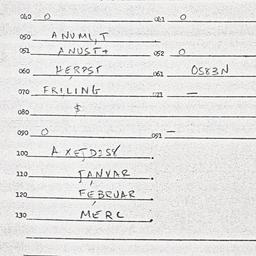 040 0 041 0
050 ANUMI,T
051 ANUST+ 052 0
060 HERPST 061 0583N
070 FRILING 071 —
080 $
090 0 091 —
100 AXETDOSY.
110 JANVAR.
120 FEBRUAR.
130 MERC.